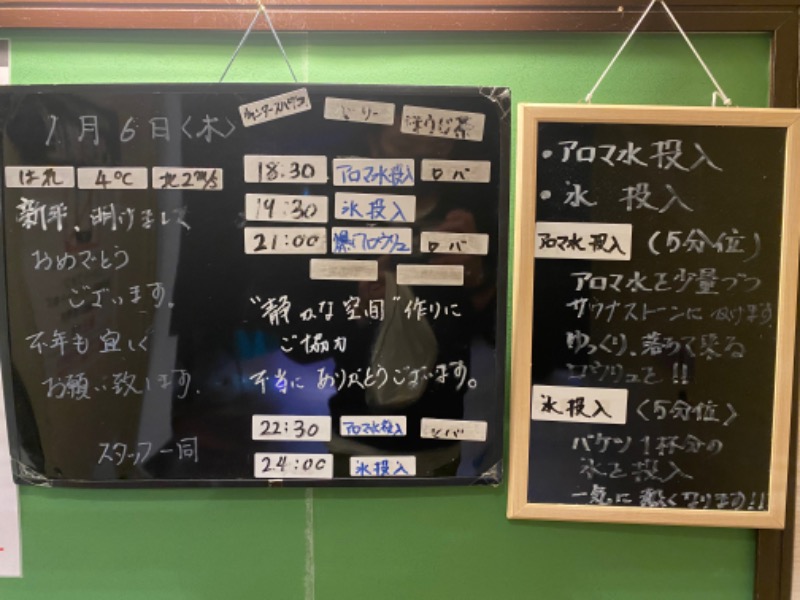 1月6日〈木〉
はれ 4℃ 北2m/s
新年、明けまして
おめでとう
ございます。
本年も宜しく
お願い致します。
スタッフ一同
18:30 アロマ水投入 ロバ
19:30 氷投入
21:00 爆ロウリュ ロバ
"静かな空間"作りに
ご協力
本当にありがとうございます。
22:30 アロマ水投入
24:00 氷投入
・アロマ水投入
・氷 投入
アロマ水投入 (5分位)
アロマ水を少量づつ
サウナストーンにかけます
ゆっくり、落めて来る
ロウリュを!!
氷投入 〈5分位〉
バケツ1杯分の
氷を投入
一気に熱くなります!!